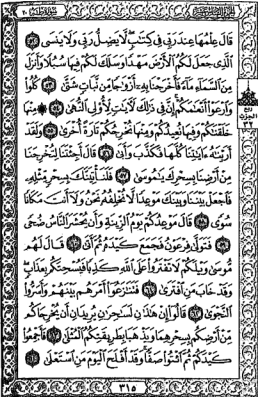 قَالَ عِلْمُهَا عِندَ رَبِّي فِي كِتَٰبٍ لَّا يَضِلُّ رَبِّي وَلَا يَنسَى
ٱلَّذِي جَعَلَ لَكُمُ ٱلْأَرْضَ مَهْدًا وَسَلَكَ لَكُمْ فِيهَا سُبُلًا وَأَنزَلَ
مِنَ ٱلسَّمَآءِ مَآءً فَأَخْرَجْنَا بِهِۦٓ أَزْوَٰجًا مِّن نَّبَاتٍ شَتَّىٰ كُلُوا۟
وَٱرْعَوْا۟ أَنْعَٰمَكُمْ إِنَّ فِي ذَٰلِكَ لَءَايَٰتٍ لِّأُو۟لِي ٱلنُّهَىٰ مِنْهَا
خَلَقْنَٰكُمْ وَفِيهَا نُعِيدُكُمْ وَمِنْهَا نُخْرِجُكُمْ تَارَةً أُخْرَىٰ وَلَقَدْ
أَرَيْنَٰهُ ءَايَٰتِنَا كُلَّهَا فَكَذَّبَ وَأَبَىٰ قَالَ أَجِئْتَنَا لِتُخْرِجَنَا
مِنْ أَرْضِنَا بِسِحْرِكَ يَٰمُوسَىٰ فَلَنَأْتِيَنَّكَ بِسِحْرٍ مِّثْلِهِۦ
فَٱجْعَلْ بَيْنَنَا وَبَيْنَكَ مَوْعِدًا لَّا نُخْلِفُهُۥ نَحْنُ وَلَآ أَنتَ مَكَانًا
سُوًى قَالَ مَوْعِدُكُمْ يَوْمُ ٱلزِّينَةِ وَأَن يُحْشَرَ ٱلنَّاسُ ضُحًى
فَتَوَلَّىٰ فِرْعَوْنُ فَجَمَعَ كَيْدَهُۥ ثُمَّ أَتَىٰ قَالَ لَهُم
مُّوسَىٰ وَيْلَكُمْ لَا تَفْتَرُوا۟ عَلَى ٱللَّهِ كَذِبًا فَيُسْحِتَكُم بِعَذَابٍ
وَقَدْ خَابَ مَنِ ٱفْتَرَىٰ فَتَنَٰزَعُوٓا۟ أَمْرَهُم بَيْنَهُمْ وَأَسَرُّوا۟
ٱلنَّجْوَىٰ قَالُوٓا۟ إِنْ هَٰذَٰنِ لَسَٰحِرَٰنِ يُرِيدَانِ أَن يُخْرِجَاكُم
مِّنْ أَرْضِكُم بِسِحْرِهِمَا وَيَذْهَبَا بِطَرِيقَتِكُمُ ٱلْمُثْلَىٰ فَأَجْمِعُوا۟
كَيْدَكُمْ ثُمَّ ٱئْتُوا۟ صَفًّا وَقَدْ أَفْلَحَ ٱلْيَوْمَ مَنِ ٱسْتَعْلَىٰ
٣١٥